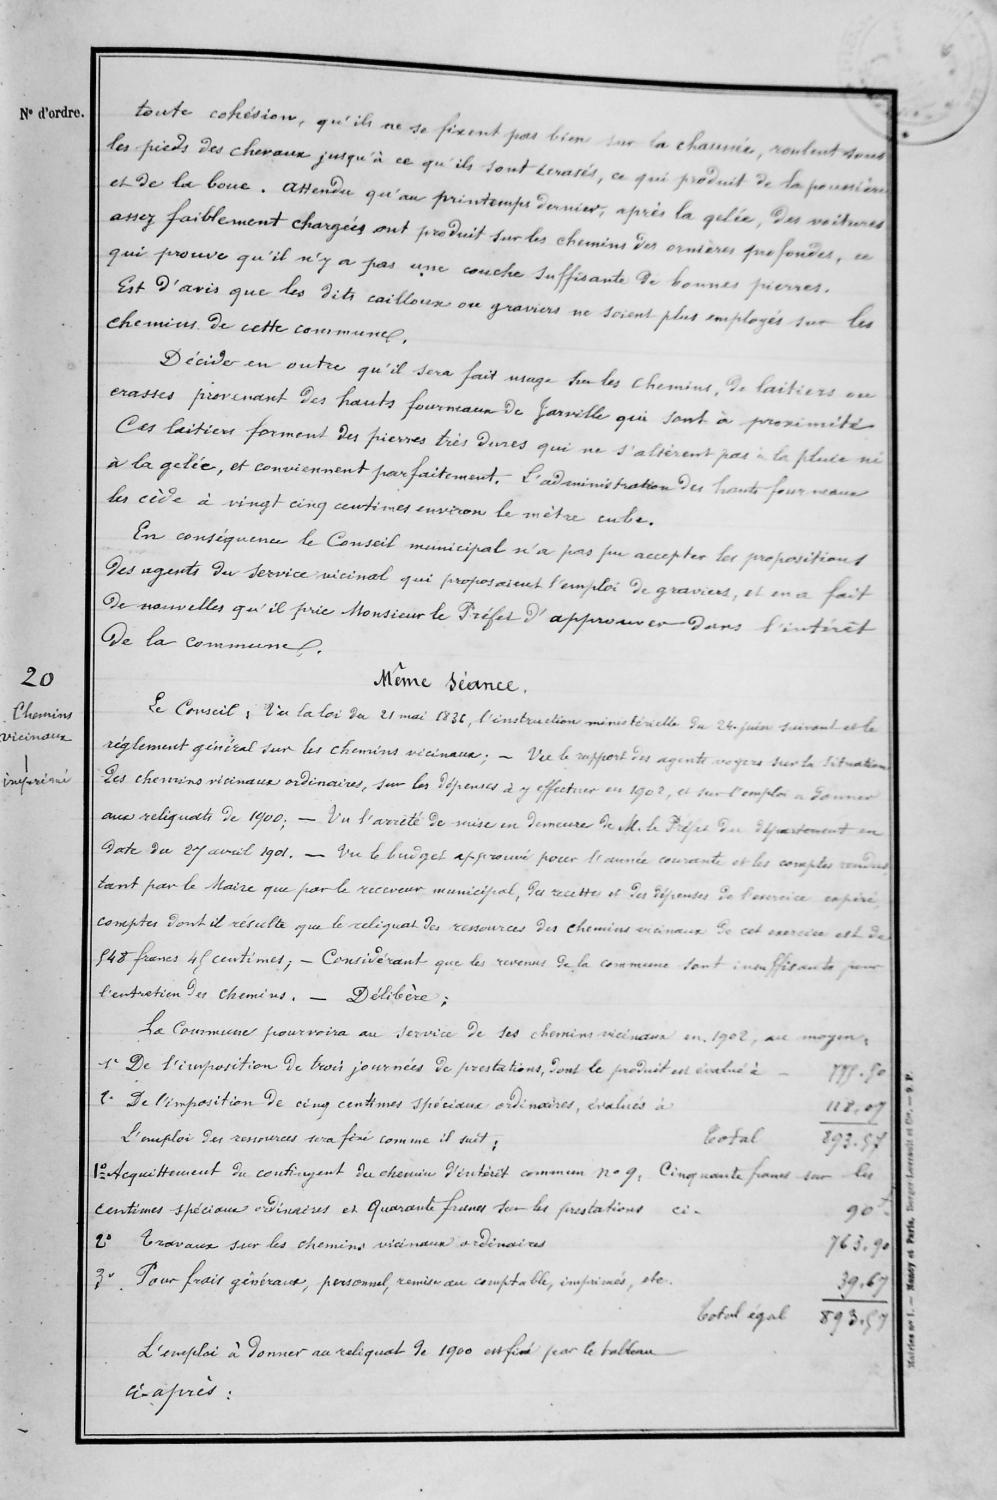 N° d'ordre.
toute cohésion, qu'ils ne se fixent pas bien sur la chaussée, roulent sous
les pieds des chevaux jusqu'à ce qu'ils sont écrasés, ce qui produit de la poussière
et de la boue. Attendu qu'au printemps dernier, après la gelée, des voitures
assez faiblement chargées ont produit sur les chemins des ornières profondes, ce
qui prouve qu'il n'y a pas une couche suffisante de bonnes pierres.
Est d'avis que les dits cailloux ou graviers ne soient plus employés sur les
chemins de cette commune.
Décide en outre qu'il sera fait usage sur les chemins, de laitiers ou
crasses provenant des hauts fourneaux de Jarville qui sont à proximité
Ces laitiers forment des pierres très dures qui ne s'altèrent pas à la pluie ni
à la gelée, et conviennent parfaitement. L'administration des hauts fourneaux
les cède à vingt cinq centimes environ le mètre cube.
En conséquence le Conseil municipal n'a pas pu accepter les propositions
des agents du service vicinal qui proposaient l'emploi de graviers, et en a fait
de nouvelles qu'il prie Monsieur le Préfet d'approuver dans l'intérêt
de la commune.
20
Chemins
vicinaux
imprimé
Même séance.
Le Conseil; Vu la loi du 21 mai 1836, l'instruction ministérielle du 24 juin suivant et le
réglement général sur les chemins vicinaux; — Vu le rapport des agents voyers sur la situation
des chemins vicinaux ordinaires, sur les dépenses à y effectuer en 1902, et sur l'emploi a donner
aux reliquats de 1900; — Vu l'arrêté de mise en demeure de M. le Préfet du département en
date du 27 avril 1901. — Vu le budget approuvé pour l'année courante et les comptes rendus,
tant par le Maire que par le receveur municipal, des recettes et des dépenses de l'exercice expiré,
comptes dont il résulte que le reliquat des ressources des chemins vicinaux de cet exercice est de
548 francs 45 centimes; — Considérant que les revenus de la commune sont insuffisants pour
l'entretien des chemins. — Délibère;
La Commune pourvoira au service de ses chemins vicinaux en 1902, au moyen;
1° De l'imposition de trois journées de prestations, dont le produit est évalué à — 775.50
2° De l'imposition de cinq centimes spéciaux ordinaires, évalués à 118.07
L'emploi des ressources sera fixé comme il suit; Total 893.57
1° Acquittement du contingent du chemin d'intérêt commun n° 9, Cinquante francs sur les
centimes spéciaux ordinaires et Quarante francs sur les prestations ci- 90 -
2° Travaux sur les chemins vicinaux ordinaires 763.90
3° Pour frais généraux, personnel, remise au comptable, imprimés, etc. 39.67
Total égal 893.57
L'emploi à donner au reliquat de 1900 est fixé par le tableau
ci-après:
Mairies n° 1. — Nancy et Paris. Berger-Levrault et Cie. — 9. P.